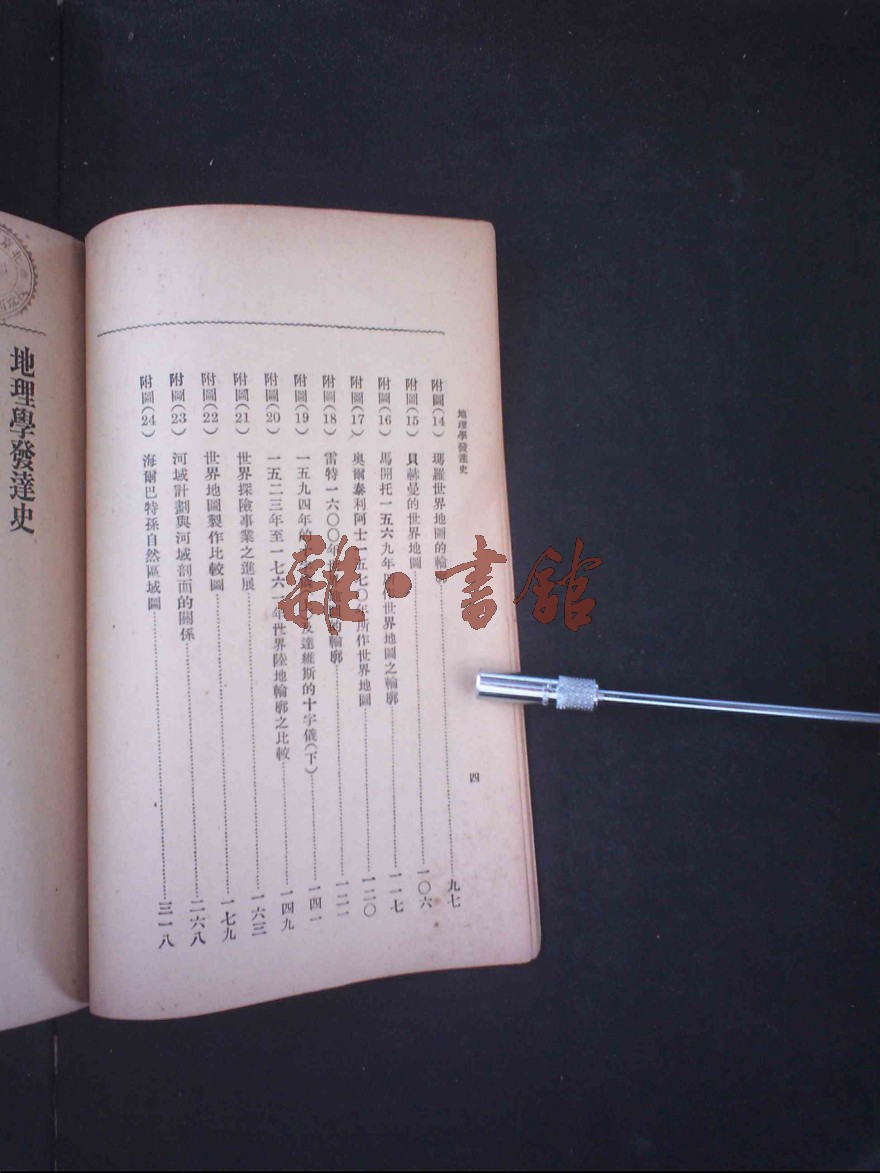 地理學發達史
四
附圖(14) 瑪羅世界地圖的輪廓……九七
附圖(15) 貝赫曼的世界地圖……一〇六
附圖(16) 馬開托一五六九年所作世界地圖之輪廓……一一七
附圖(17) 奧爾泰利阿士一五七〇年所作世界地圖……一二〇
附圖(18) 雷特一六〇〇年世 的輪廓……一二二
附圖(19) 一五九四年的 及達維斯的十字儀(下)……一四一
附圖(20) 一五二三年至一七六一年世界陸地輪廓之比較……一四九
附圖(21) 世界探險事業之進展……一六三
附圖(22) 世界地圖製作比較圖……一七九
附圖(23) 河域計劃與河域剖面的關係……二六八
附圖(24) 海爾巴特孫自然區域圖……三一八
地理學發達史
雜·書館